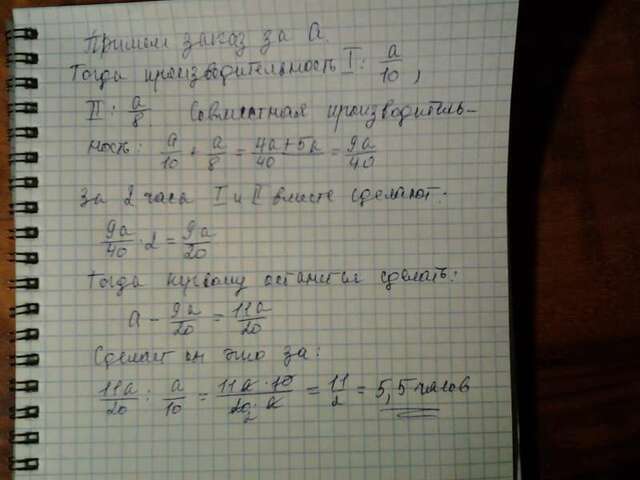 Примем заказ за a.
Тогда производительность I: a/10,
II: a/8. Совместная производитель-
ность: a/10 + a/8 = 4a+5a/40 = 9a/40
За 2 часа I и II вместе сделают:
9a/40 · 2 = 9a/20
Тогда первому останется сделать:
a - 9a/20 = 11a/20
Сделает он это за:
11a/20 : a/10 = 11a · 10/20 · a = 11/2 = 5,5 часов